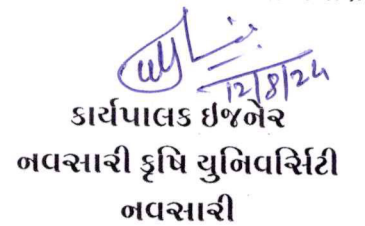 12/8/24
કાર્યપાલક ઇજનેર
નવસારી કૃષિ યુનિવર્સિટી
નવસારી